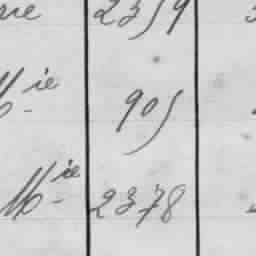 rie 2359
Mie 905
Mie 2378